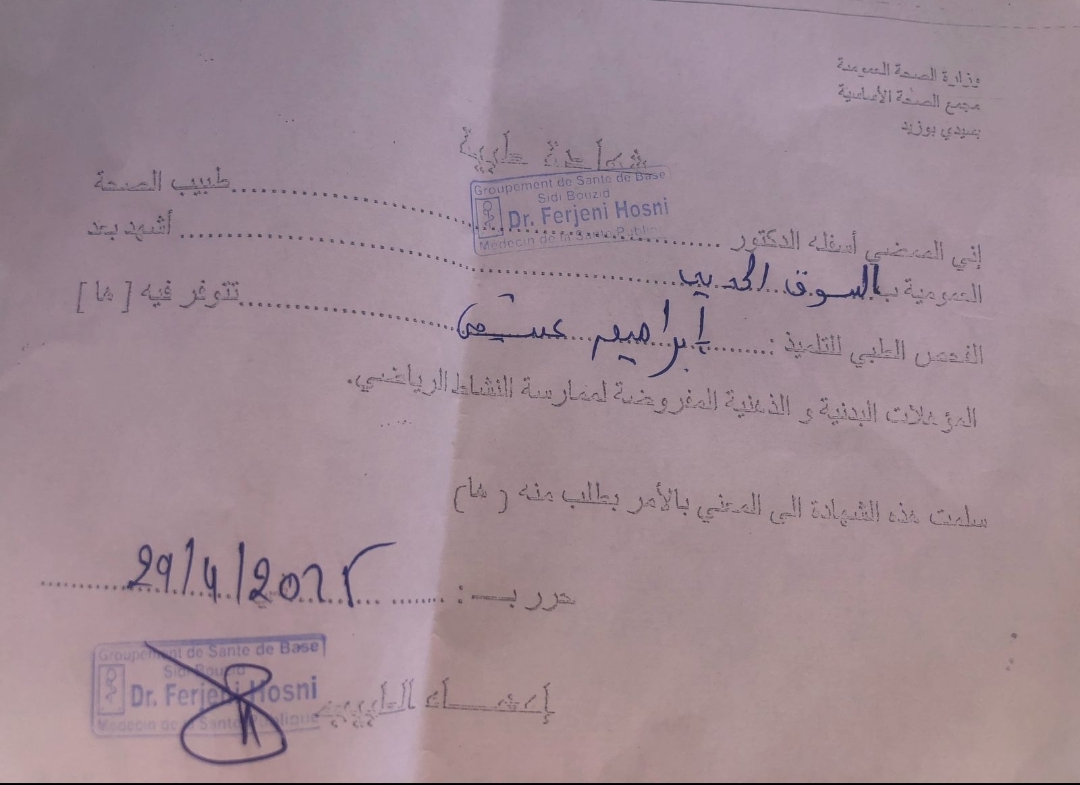 وزارة الصحة العمومية
مجمع الصحة الأساسية
بسيدي بوزيد
شهادة طبية
Groupement de Sante de Base
Sidi Bouzid
Dr. Ferjeni Hosni
Médecin de la Sante Public
إني الممضي أسفله الدكتور .................... طبيب الصحة
العمومية بالسوق الجديد .................... أشهد بعد
الفحص الطبي للتلميذ : إبراهيم .................... تتوفر فيه [ ها ]
المؤهلات البدنية و الذهنية المفروضة لممارسة النشاط الرياضي.
سلمت هذه الشهادة الى المعني بالأمر بطلب منه ( ها)
حرر بـ : .......... 29/4/2022
إمضاء الطبيب
Groupement de Sante de Base
Sidi Bouzid
Dr. Ferjeni Hosni
Médecin de la Sante Publique